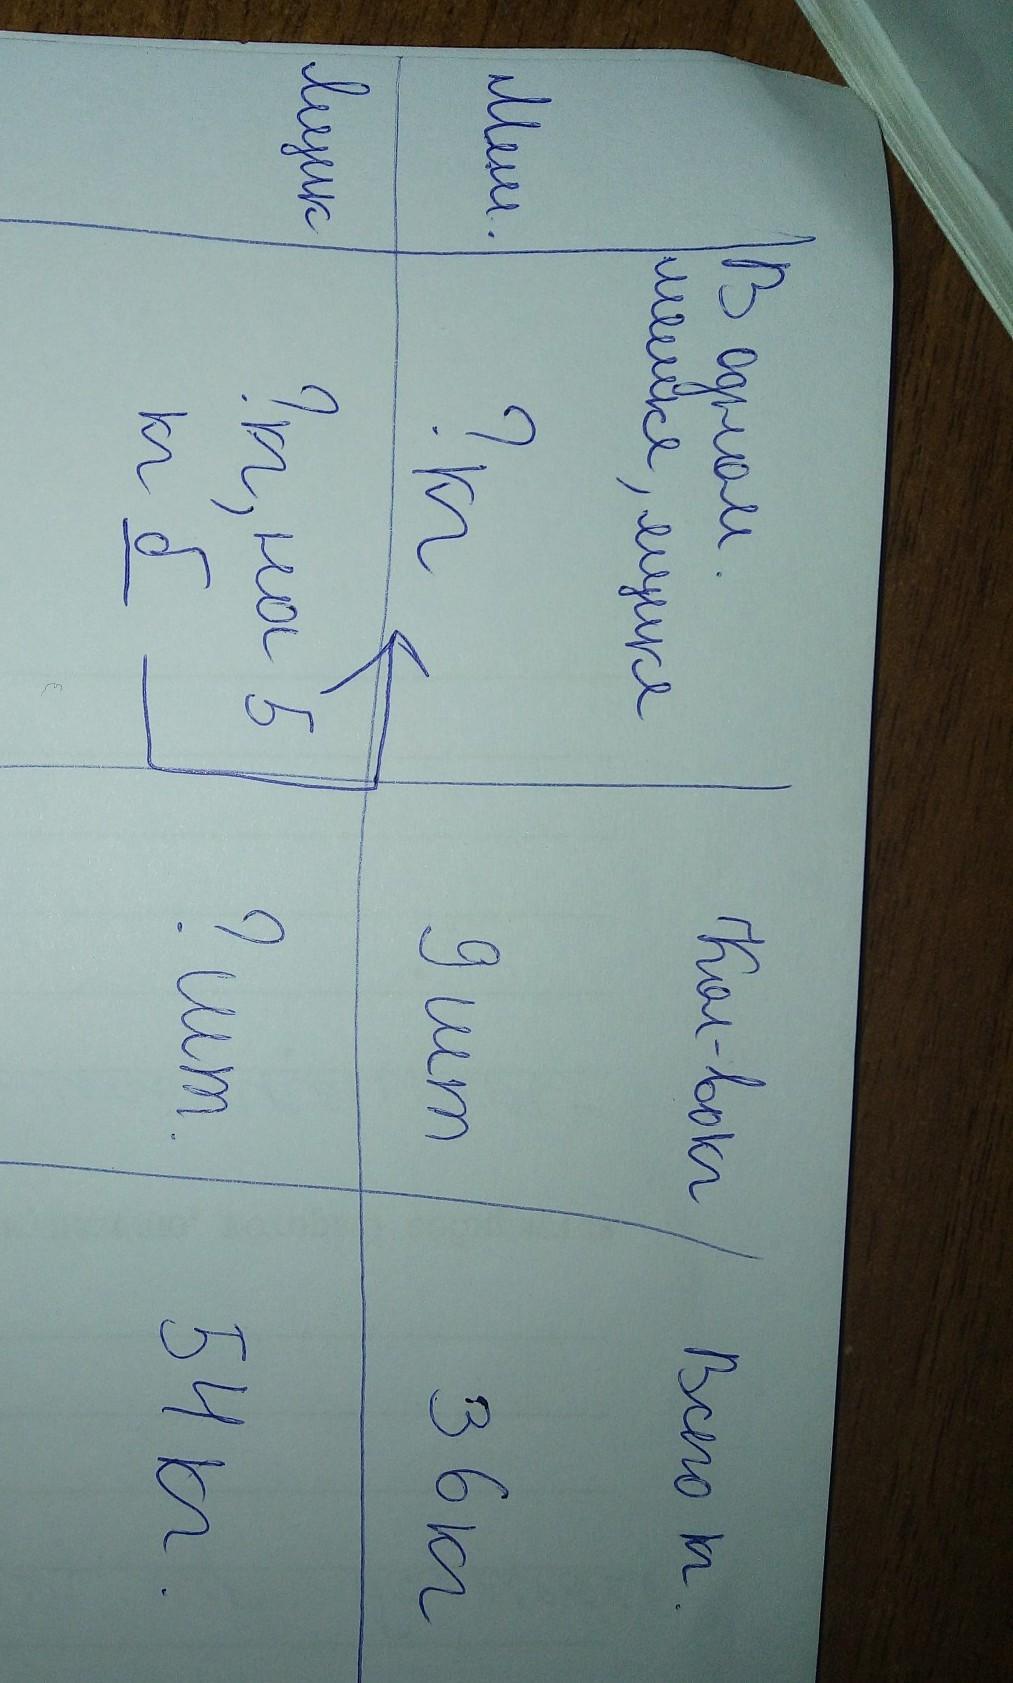 В одном. Кол-вокг Всего кг.
мешке, ящике
Меш. ?кг 9 шт 36кг
Ящик ?кг, на 5 ?шт. 54кг.
кг б